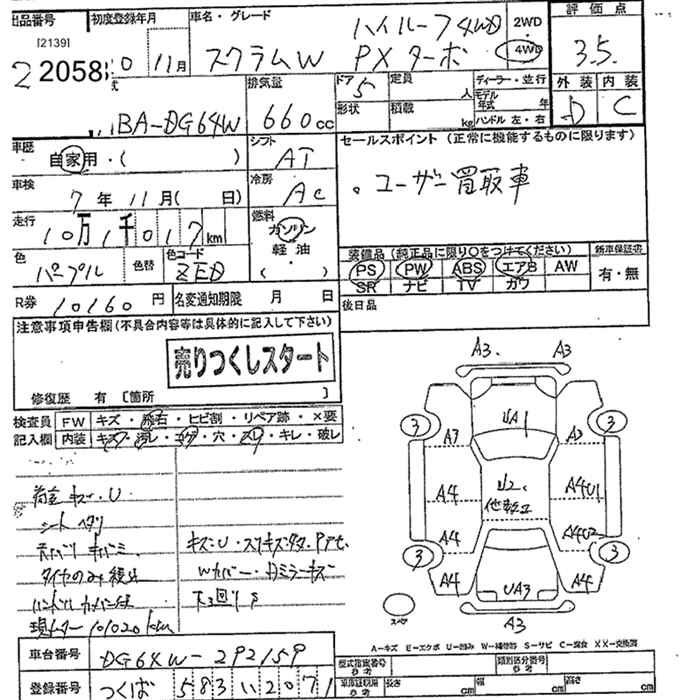 出品番号 初度登録年月 車名・グレード ハイルーフ4WD 2WD 評価点
[2139]
22058 0 11月 スクラムW PXターボ 4WD 3.5
排気量 ドア 5 定員 人 ディーラー・並行 外装 内装
形状 積載 kg モデル年式 年 D C
BA-DG64W 660cc ハンドル 左・右
車歴 自家用・( ) シフト AT セールスポイント(正常に機能するものに限ります)
車検 7年11月( 日) 冷房 AC 。ユーザー買取車
走行 10万1千017km 燃料 ガソリン・軽油 ( )
装備品(純正品に限り○をつけてください) 新車保証書
色 パープル 色替 色コード ZED PS PW ABS エアB AW 有・無
SR ナビ TV カワ
R券 10160円 名変通知期限 月 日 後日品
注意事項申告欄(不具合内容等は具体的に記入して下さい)
売りつくしスタート
修復歴 有 [箇所 ]
検査員 FW キズ・飛石・ヒビ割・リペア跡・×要
記入欄 内装 キズ・汚レ・コゲ・穴・スレ・キレ・破レ
荷室キズ・U
シートヘタリ
タイヤのみ積出
現メーター101020km
キズ・U・スリキズ・タタ・Pアセ
Wカバー・Dミラーキズ
下回りS
A3 A3
3 UA1 3
A3 A3
U2
A4 A4U1
A4 A4U2
3 3
A4 UA3 A4
スペア A3
A-キズ E-エクボ U-凹み W-補修跡 S-サビ C-腐食 XX-交換済
車台番号 DG64W-292159 型式指定番号 参考 類別区分番号 参考
登録番号 つくば 583 い 2071 車庫証明用 参考 長さ cm 幅 cm 高さ cm